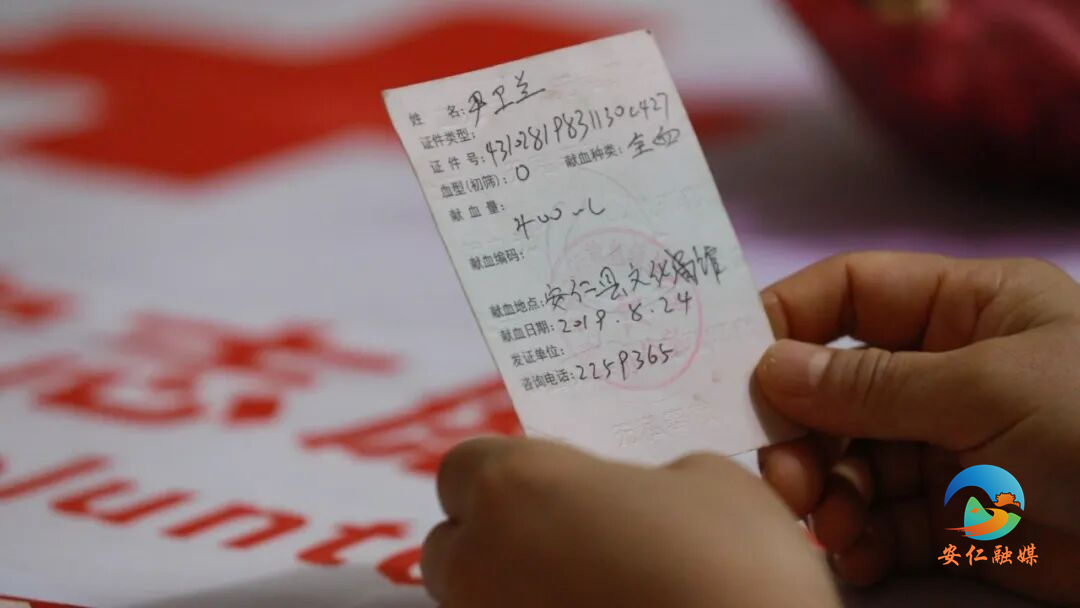 姓 名: 尹卫兰
证件类型:
证件号: 431028198311300427
血型(初筛): O 献血种类: 全血
献血量: 400ml
献血编码:
献血地点: 安仁县文化馆
献血日期: 2019.8.24
发证单位:
咨询电话: 2259365
志愿
olunte
安仁融媒